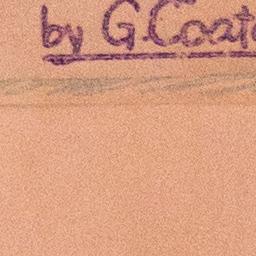 by G. Coat